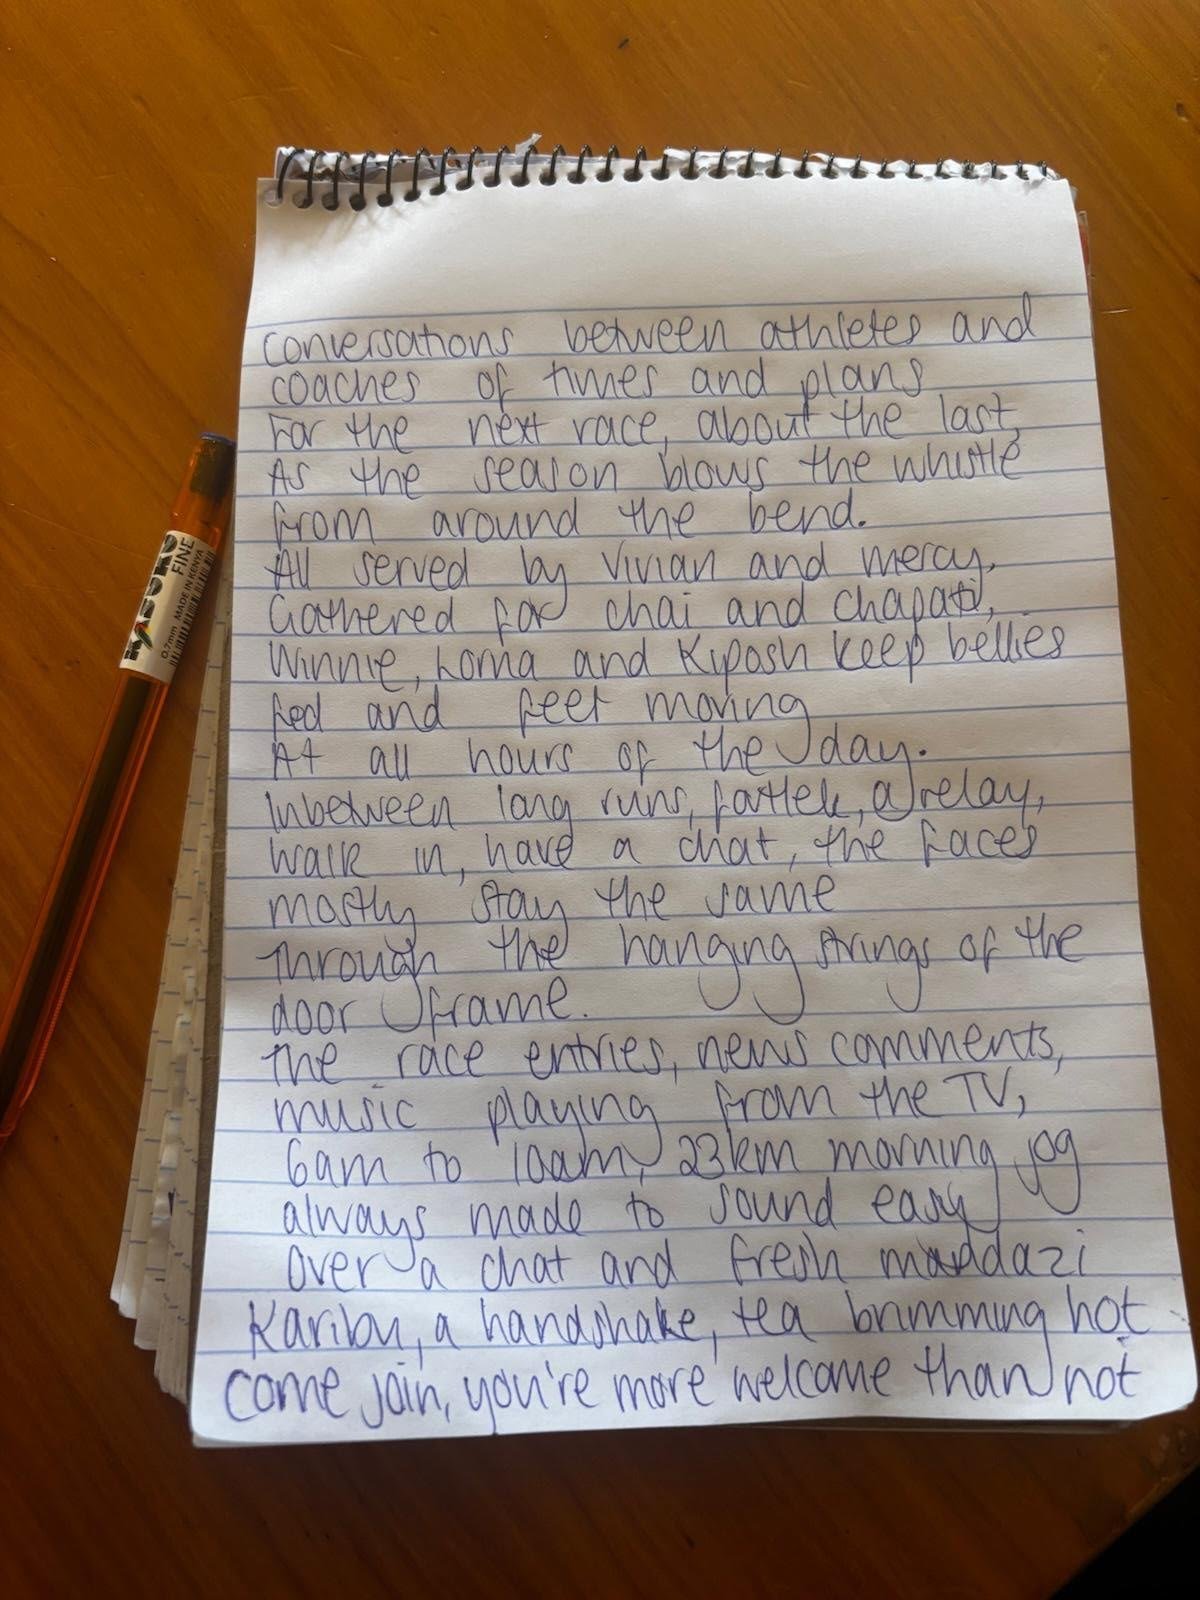 conversations between athletes and
coaches of times and plans
For the next race, about the last,
As the season blows the whistle
from around the bend.
All served by Vivian and mercy,
Gathered for chai and chapati,
Winnie, Lorna and Kiposh keep bellies
fed and feet moving
At all hours of the day.
Inbetween long runs, fartlek, a relay,
walk in, have a chat, the faces
mostly stay the same
Through the hanging strings of the
door frame.
The race entries, news comments,
music playing from the TV,
6am to 10am, 23km morning jog
always made to sound easy
over a chat and fresh mandazi
Karibu, a handshake, tea brimming hot
come join, you're more welcome than not
KASUKU
FINE
0.7mm MADE IN KENYA